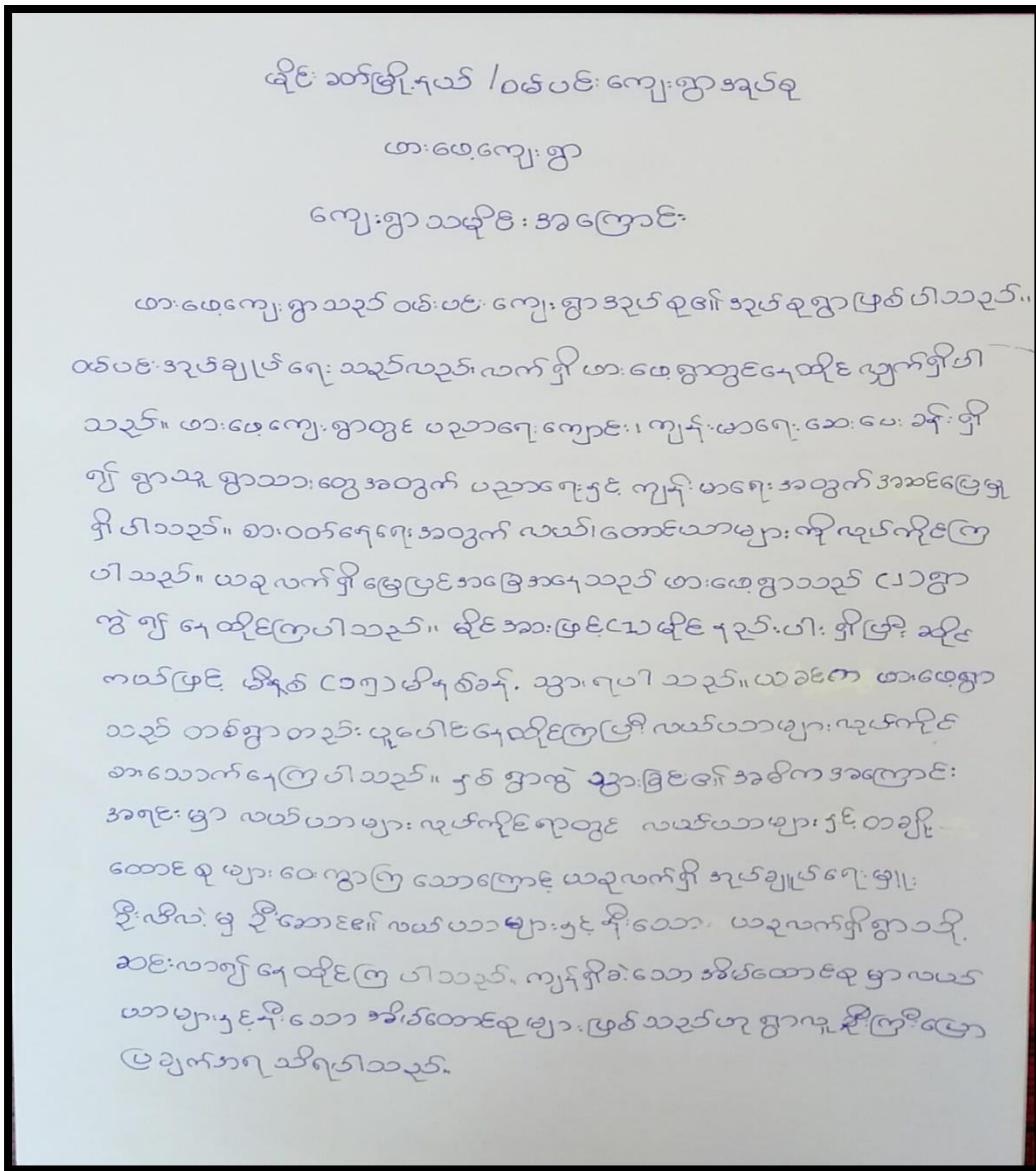 မိုင်းခတ်မြို့နယ် /ဝမ်ပင်းကျေးရွာအုပ်စု
ဖားဖေ့ကျေးရွာ
ကျေးရွာသမိုင်းအကြောင်း
ဖားဖေ့ကျေးရွာသည် ဝမ်းပင်း ကျေးရွာအုပ်စု၏ အုပ်စုရွာဖြစ်ပါသည်။
ဝမ်ပင်းအုပ်ချုပ်ရေး သည်လည်း လက်ရှိ ဖားဖေ့ရွာတွင်နေထိုင် လျှက်ရှိပါ
သည်။ ဖားဖေ့ကျေးရွာတွင် ပညာရေးကျောင်း၊ ကျန်းမာရေးဆေးပေးခန်းရှိ
၍ ရွာသူ ရွာသားတွေအတွက် ပညာရေးနှင့် ကျန်းမာရေးအတွက် အဆင်ပြေမှု
ရှိပါသည်။ စားဝတ်နေရေးအတွက် လယ်၊တောင်ယာများကို လုပ်ကိုင်ကြ
ပါသည်။ ယခုလက်ရှိ မြေပြင်အခြေအနေသည် ဖားဖေ့ရွာသည် (၂)ရွာ
ကွဲ၍ နေထိုင်ကြပါသည်။ မိုင်အားဖြင့်(၁)မိုင်နည်းပါး ရှိပြီး ဆိုင်
ကယ်ဖြင့် မိနစ် (၁၅)မိနစ်ခန့် သွားရပါသည်။ ယခင်က ဖားဖေ့ရွာ
သည် တစ်ရွာတည်း ပူပေါင်းနေထိုင်ကြပြီး လယ်ယာများလုပ်ကိုင်
စားသောက်နေကြပါသည်။ နှစ်ရွာကွဲ သွားခြင်း၏ အဓိကအကြောင်း
အရင်းမှာ လယ်ယာများလုပ်ကိုင်ရာတွင် လယ်ယာများနှင့်တချို့
ထောင်စုများဝေးကွာကြသောကြောင့် ယခုလက်ရှိ အုပ်ချူပ်ရေးမှူး
ဦးလီလဲ့မှ ဦးဆောင်၏ လယ်ယာများနှင့်နီးသော ယခုလက်ရှိရွာသို့
ဆင်းလာ၍ နေထိုင်ကြပါသည်။ ကျန်ရှိခဲ့သော အိမ်ထောင်စုမှာ လယ်
ယာများနှင့်နီးသော အိမ်ထောင်စုများဖြစ်သည်ဟု ရွာလူဦးကြီးပြော
ပြချက်အရ သိရပါသည်။